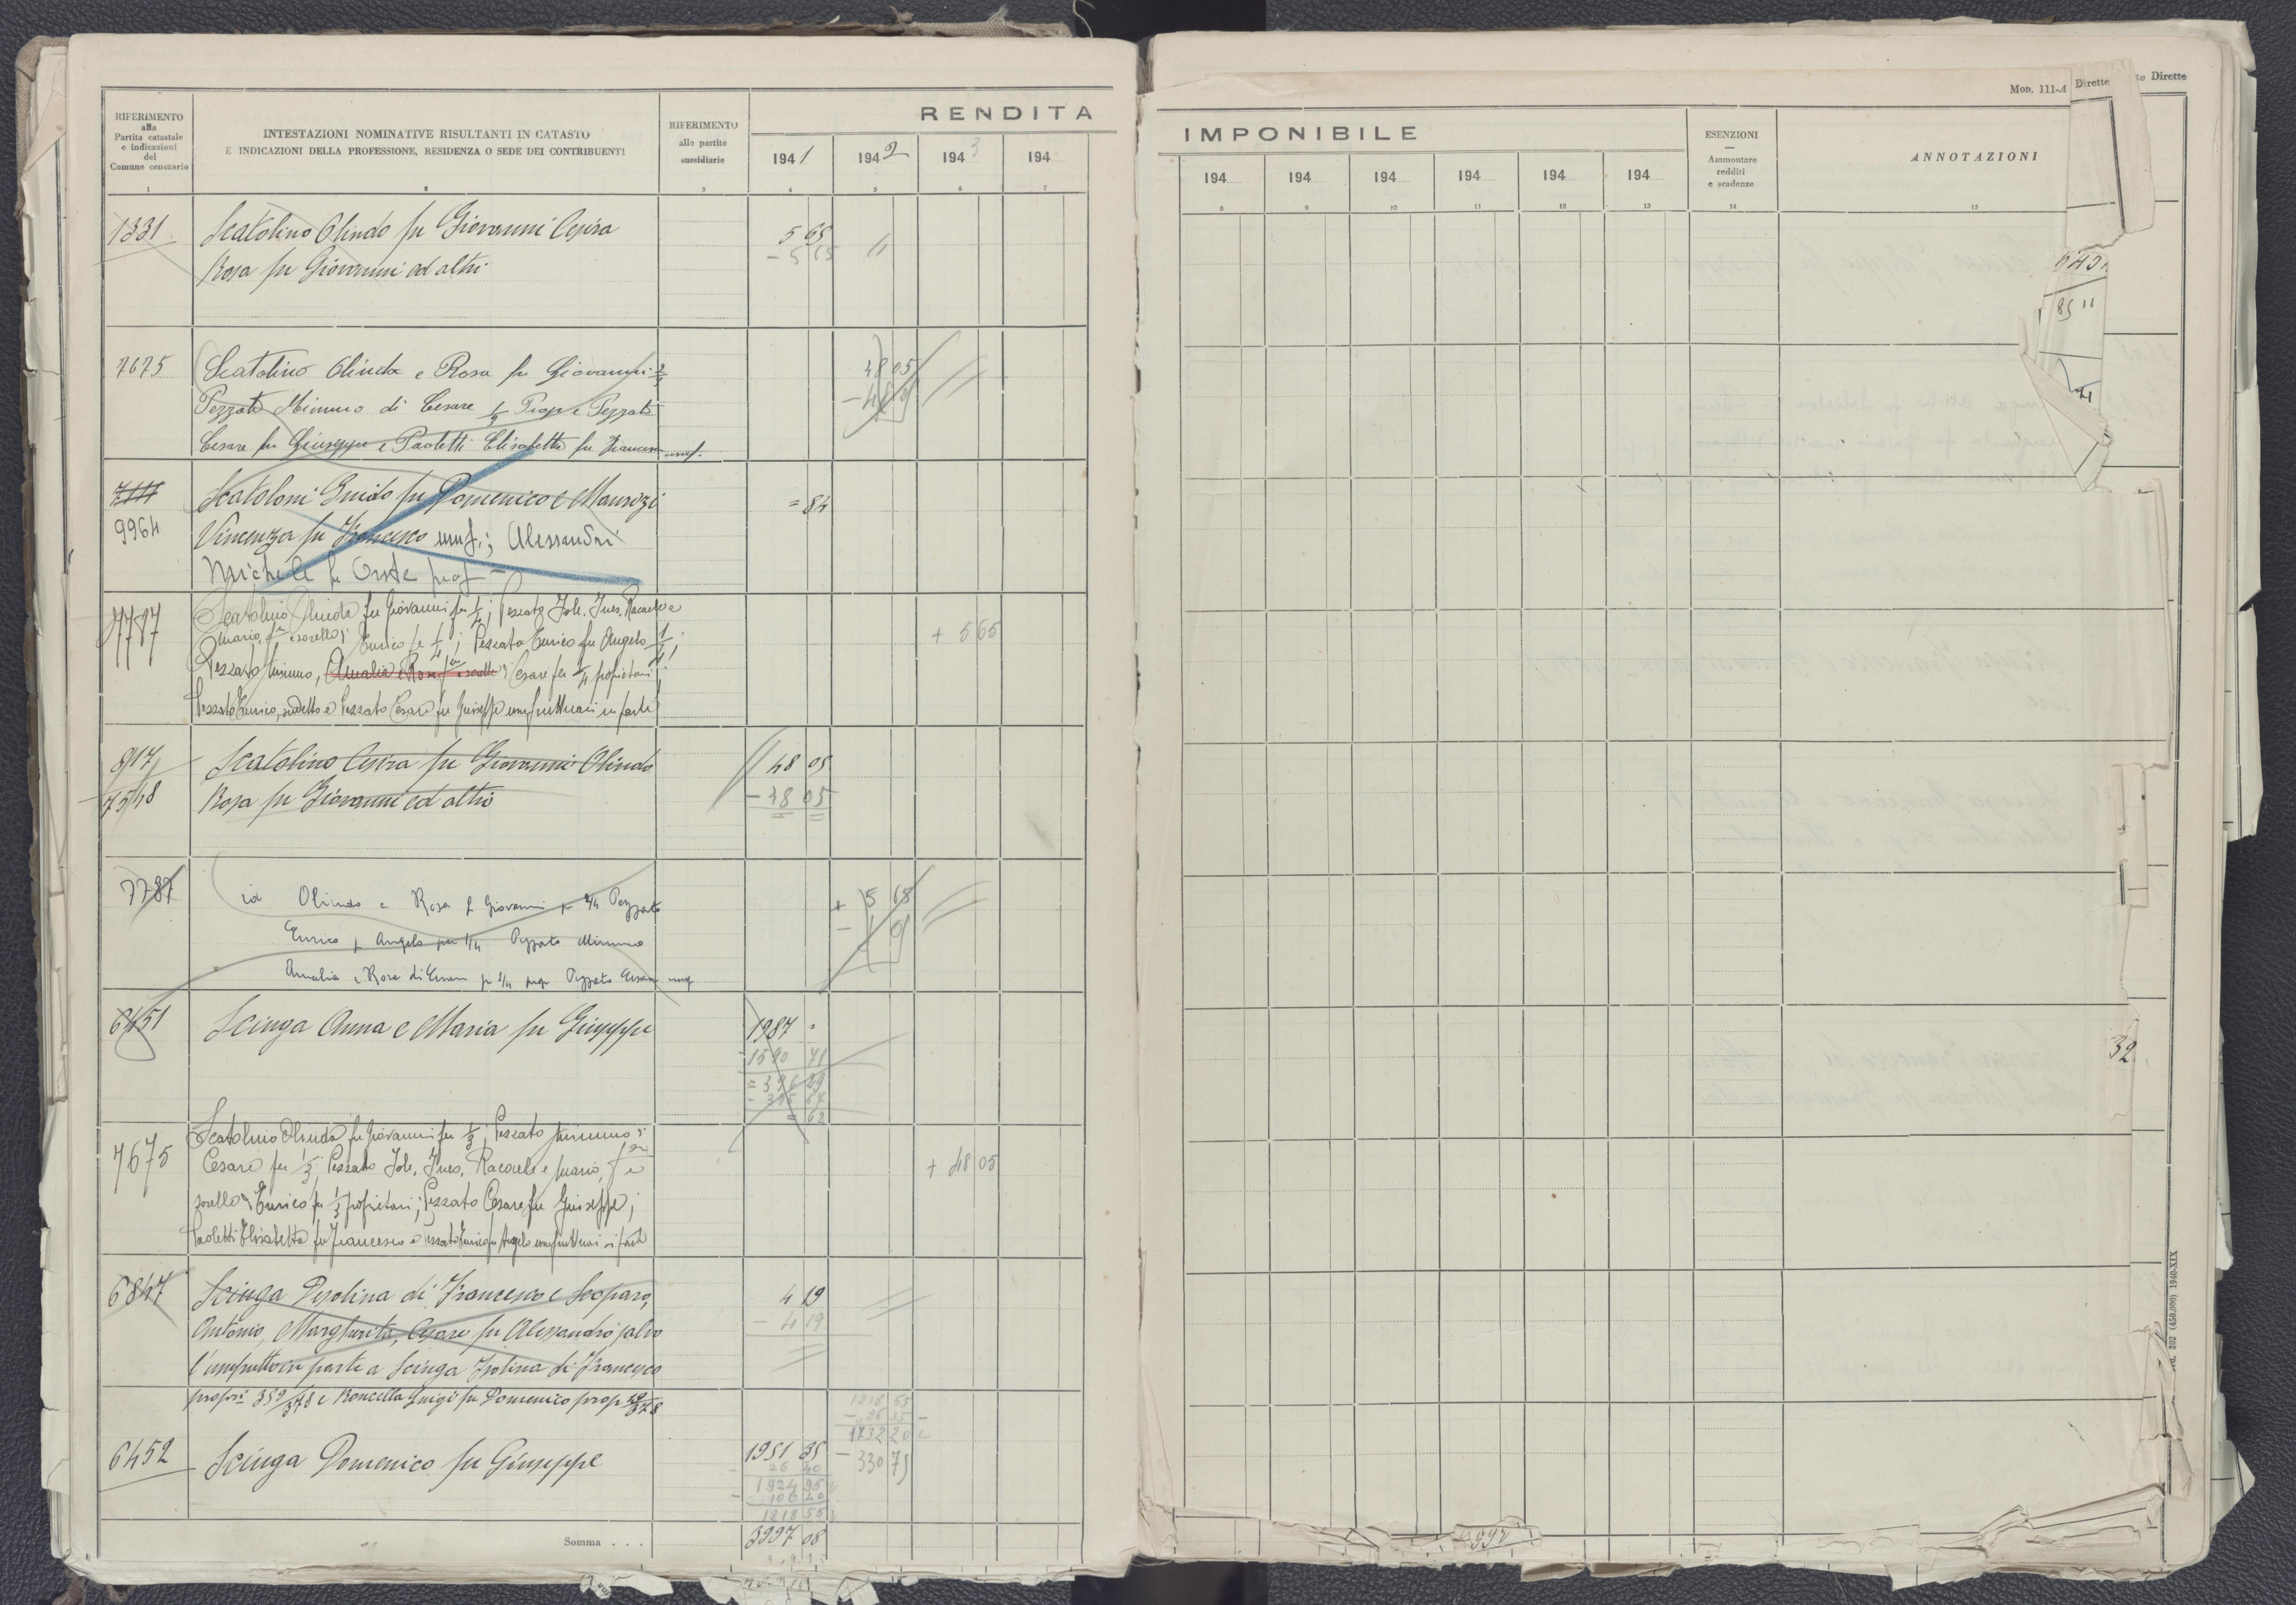 RENDITA
RIFERIMENTO
alla
Partita catastale
e indicazioni
del
Comune censuario
1
INTESTAZIONI NOMINATIVE RISULTANTI IN CATASTO
E INDICAZIONI DELLA PROFESSIONE, RESIDENZA O SEDE DEI CONTRIBUENTI
2
RIFERIMENTO
alle partite
sussidiarie
3
1941
4
1942
5
1943
6
194
7
1331 Scatolino Olindo fu Giovanni Cesira 5 65
Rosa fu Giovanni ed altri - 5 65 //
7675 Scatolino Olinda e Rosa fu Giovanni 2/3 48 05
Pezzato Mimmo di Cesare 1/3 Prop e Pezzato
Cesare fu Giuseppe e Paoletti Elisabetta fu Francesco usuf.
Scatoloni Guido fu Domenico e Maurizi = 84
9964 Vincenza fu Francesco usuf.; Alessandri
Michele fu Oreste prop
7787 Scatolino Olinda fu Giovanni per 1/4; Pezzato Jole, Ines, Racaele e
Mario, fr. e sorelle; Enrico per 1/4; Pezzato Enrico fu Angelo 1/4; + 5 65
Pezzato Mimmo, Amalia e Rosa di Cesare per 1/4 proprietari;
Pezzato Enrico, suddetto e Pezzato Cesare fu Giuseppe usufruttuari in parte
817 Scatolino Cesira fu Giovanni Olindo 48 05
7548 Rosa fu Giovanni ed altri - 48 05
7787 id Olindo e Rosa f Giovanni p 2/4 Pezzato + 5 65
Enrico f Angelo per 1/4 Pezzato Mimmo
Amalia e Rosa di Cesare p 1/4 prop Pezzato Cesare usuf
6451 Sciuga Anna e Maria fu Giuseppe 1987 =
- 1590 71
= 396 29
- 395 67
= 62
7675 Scatolino Olinda fu Giovanni per 1/3; Pezzato Mimmo di
Cesare per 1/3 Pezzato Jole, Ines, Racaele e Mario, fr e + 48 05
sorelle di Enrico per 1/3 proprietari; Pezzato Cesare fu Giuseppe;
Paoletti Elisabetta fu Francesco e Pezzato Enrico fu Angelo usufruttuari in parte
6847 Sciuga Isolina di Francesco e Scoparo, 4 19
Antonio, Margherita, Cesare fu Alessandro salvo - 4 19
l'usufrutto in parte a Sciuga Isolina di Francesco
propri 359/378 e Roncella Luigi fu Domenico prop 19/378
1818 55
- 86 35
1732 20
6452 Sciuga Domenico fu Giuseppe 1951 35 - 330 75
- 26 40
1924 95
- 106 40
1818 55
Somma . . . 3997 08
IMPONIBILE
194
8
194
9
194
10
194
11
194
12
194
13
ESENZIONI
Ammontare
redditi
e scadenze
14
ANNOTAZIONI
15
Mod. 111-A
Dirette
te Dirette
85 11
32
202 (450.000) 1940-XIX